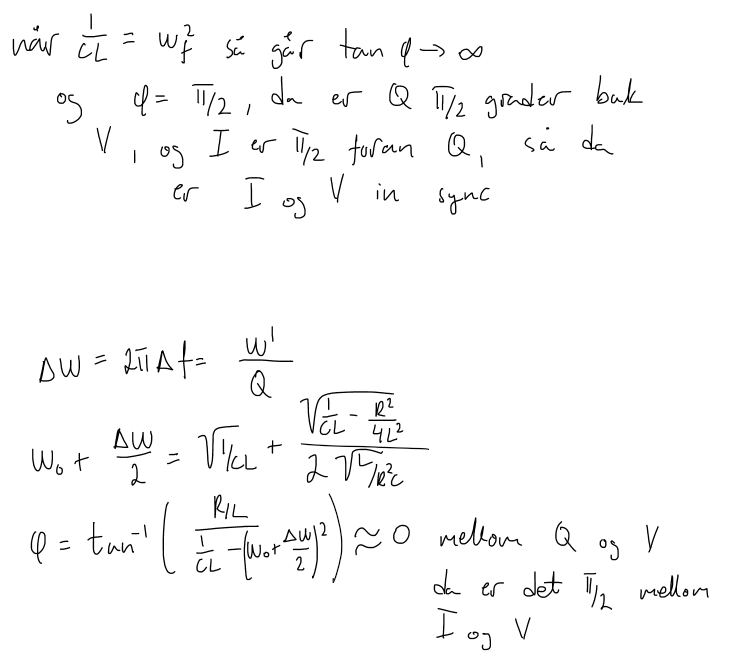 når 1/CL = w_f^2 så går tan φ → ∞
og φ = π/2, da er Q π/2 grader bak
V, og I er π/2 foran Q, så da
er I og V in sync
Δw = 2πΔf = w'/Q
w_0 + Δw/2 = √(1/CL) + √(1/CL - R^2/4L^2) / 2√(L/R^2C)
φ = tan^-1 ( R/L / (1/CL - (w_0 + Δw/2)^2) ) ≈ 0 mellom Q og V
da er det π/2 mellom
I og V